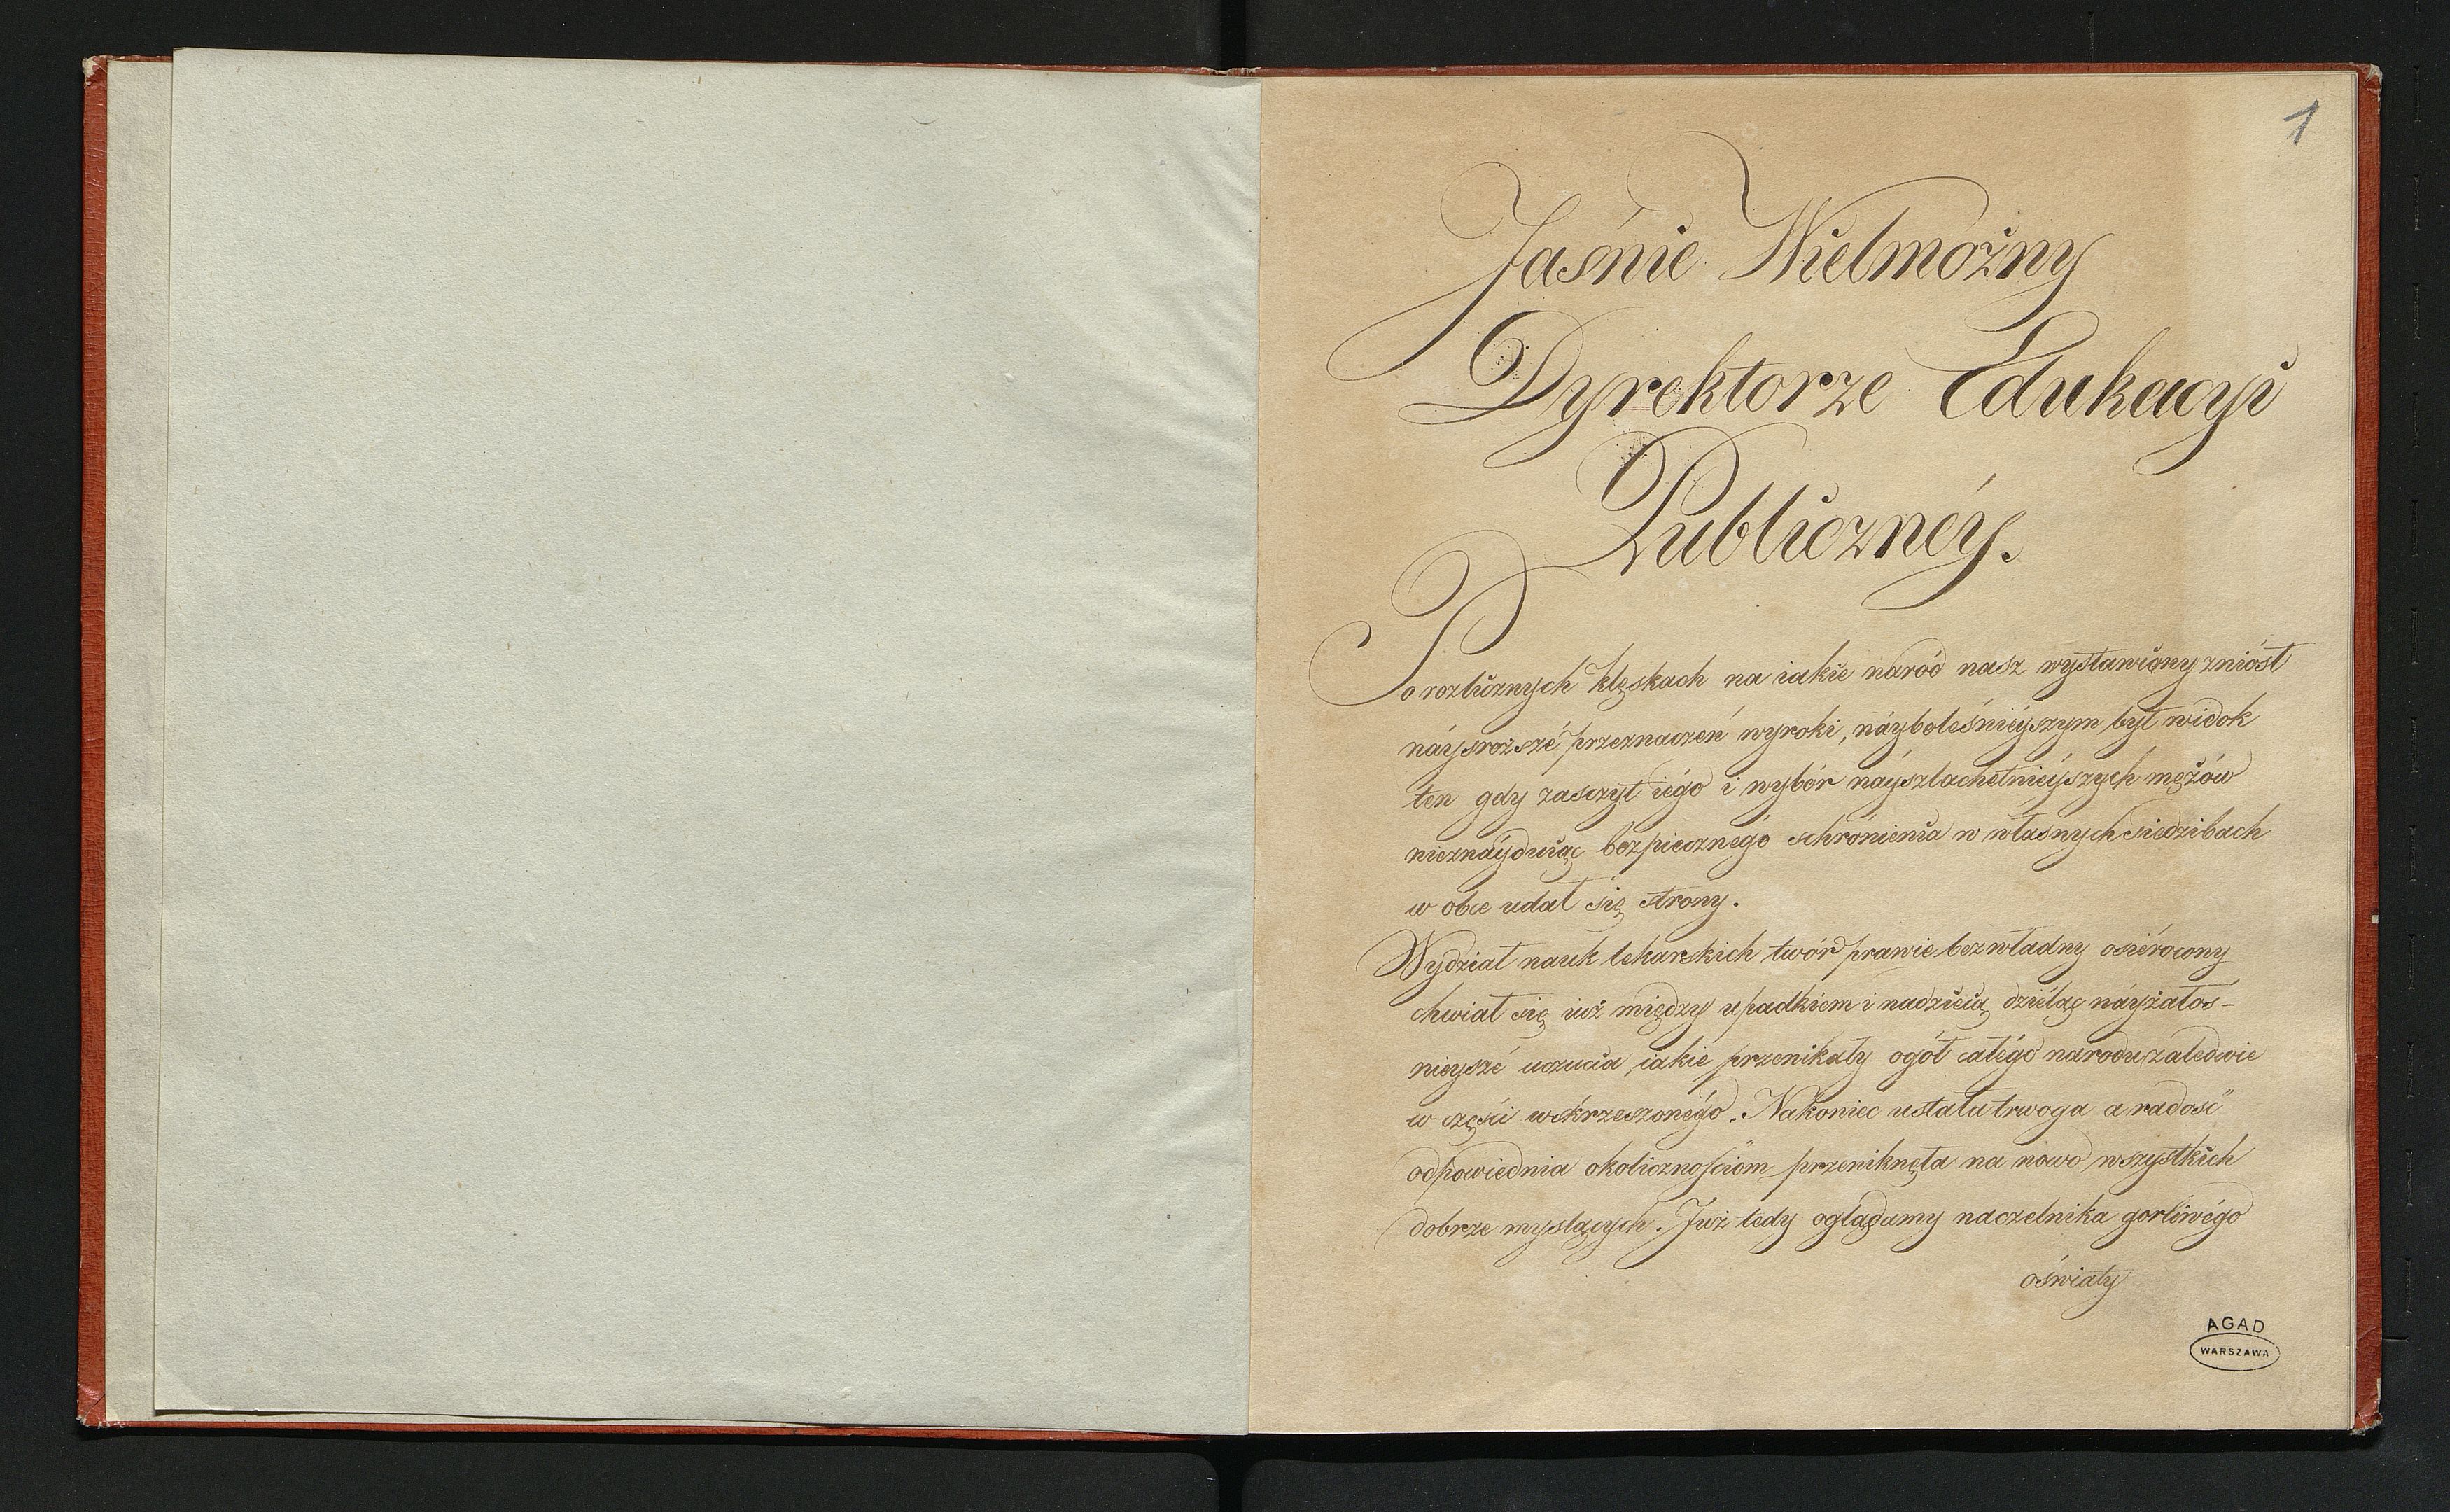 1
Jaśnie Wielmożny
Dyrektorze Edukacyi
Publicznéy.
Po rozlicznych klęskach na iakie naród nasz wystawiony zniósł
náysroższé przeznaczeń wyroki, náyboleśniéyszym był widok
ten gdy zaszczyt iégo i wybór náyszlachetniéyszych mężów
nieznáyduiąc bezpiecznégo schrónienia w własnych siedzibach
w obce udał się strony.
Wydział nauk lekarskich twór prawie bezwładny osiérocony
chwiał się iuż między upadkiem i nadzieią dziéląc náyżałos-
nieyszé uczucia iakie przenikały ogół całégo narodu zaledwie
w części wskrzeszonégo. Nakoniec ustała trwoga a radość
odpowiednia okolicznościóm przeniknęła na nowo wszystkich
dobrze myslących. Już tedy oglądamy naczelnika gorliwégo
oświaty
AGAD
WARSZAWA